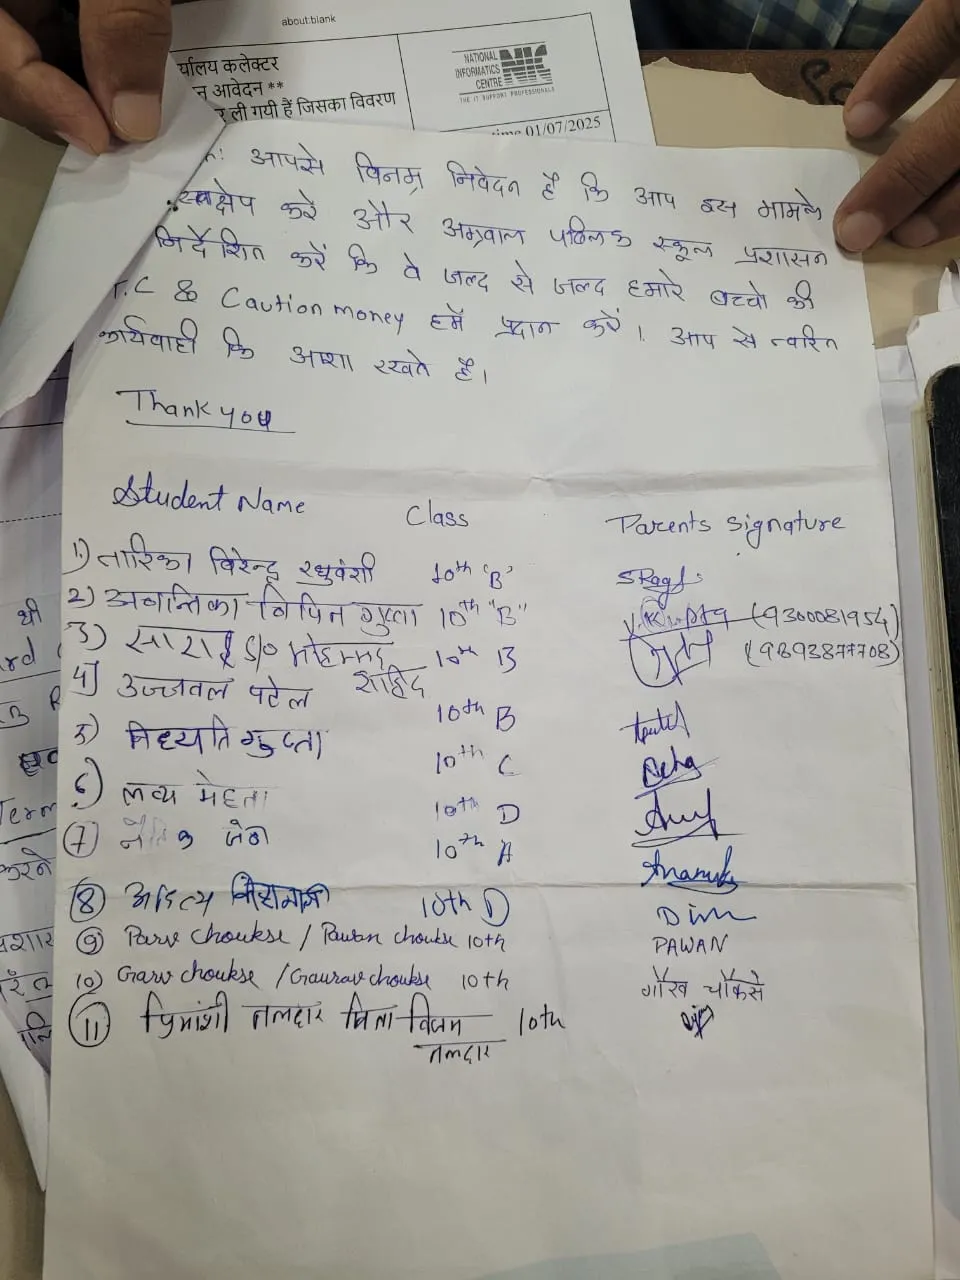 about:blank
र्यालय कलेक्टर
न आवेदन **
र ली गयी हैं जिसका विवरण
NATIONAL
INFORMATICS
CENTRE
NIC
THE IT SUPPORT PROFESSIONALS
01/07/2025
आपसे विनम्र निवेदन है कि आप इस मामले
क्षेप करें और अग्रवाल पब्लिक स्कूल प्रशासन
निर्देशित करें कि वे जल्द से जल्द हमारे बच्चो की
T.C & Caution money हमें प्रदान करें। आप से त्वरित
कार्यवाही कि आशा रखते है।
Thank you
Student Name Class Parents Signature
1) तारिका विरेन्द्र रघुवंशी 10th 'B'
2) अवन्तिका विपिन गुप्ता 10th "B" (9300081954)
3) सारा S/o मोहम्मद शाहिद 10th B (9893877708)
4) उज्जवल पटेल 10th B
5) गुप्ता 10th C
6) लव्य मेहता 10th D
7) नैतिक जैन 10th A
8) आदित्य 10th D
9) Parv Choukse / Pawan Choukse 10th PAWAN
10) Garv Choukse / Gaurav Choukse 10th गौरव चौकसे
11) प्रियांशी तलदार पिता विजय 10th
तलदार